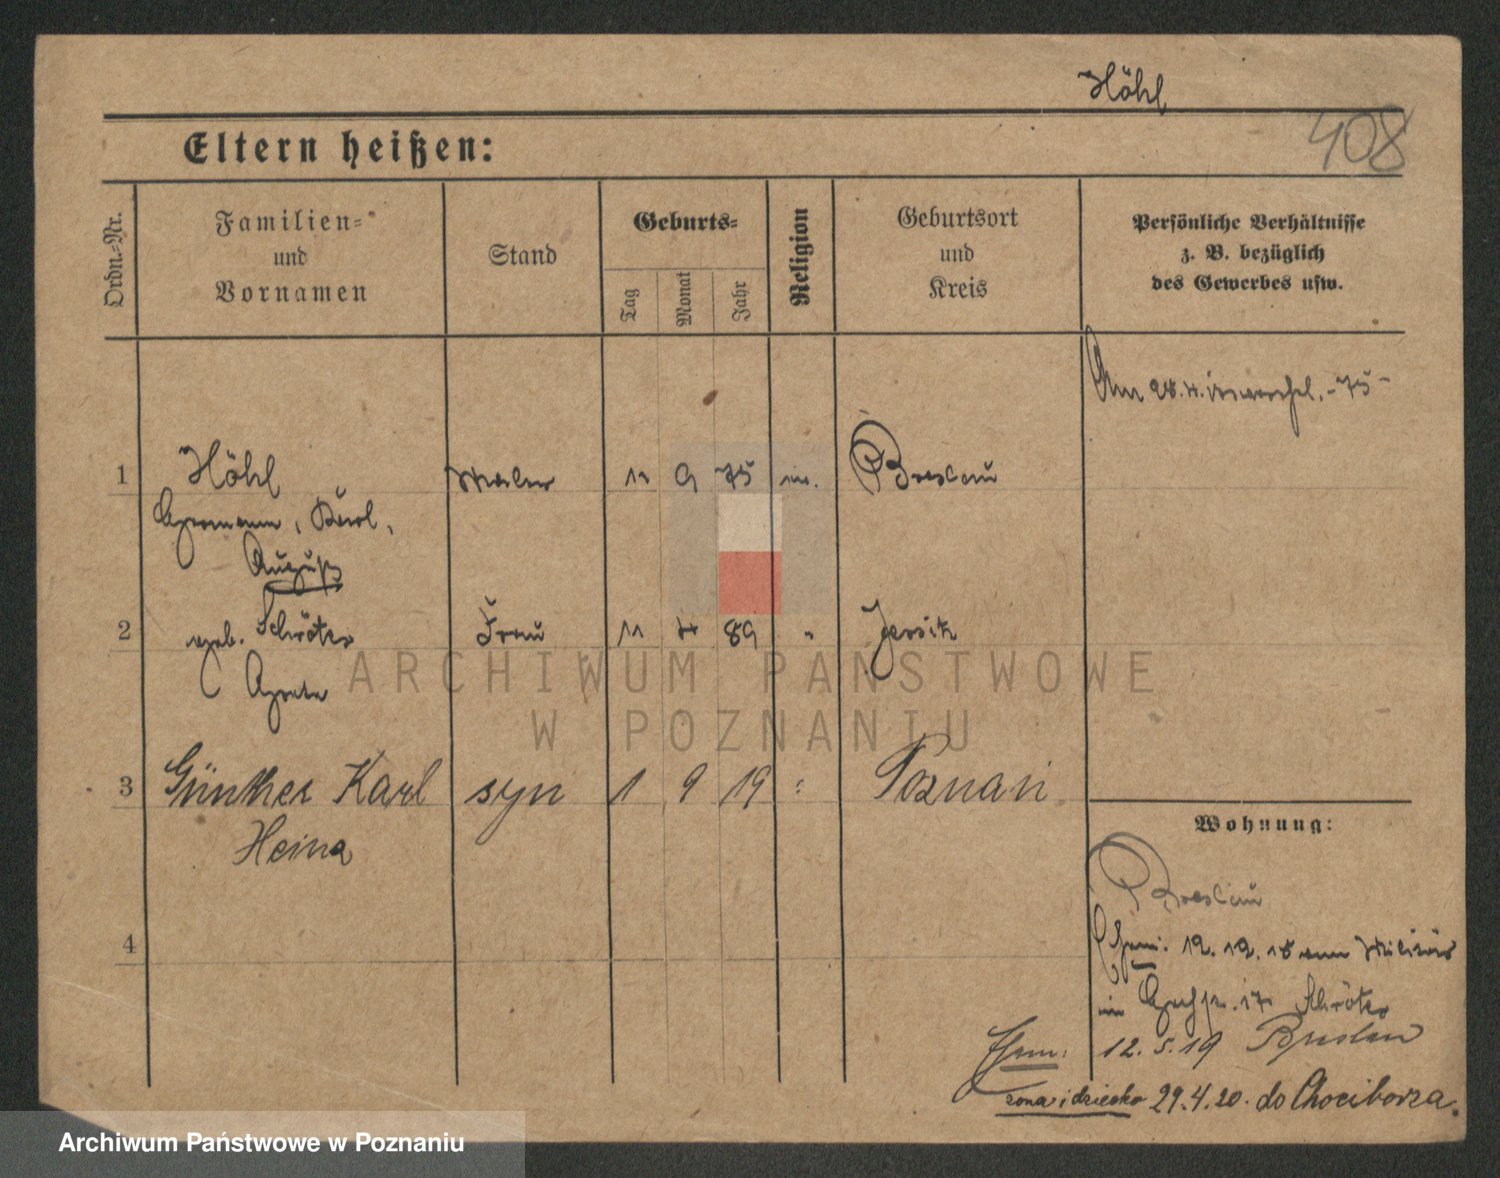 Höhl
408
Eltern heißen:
Ordn.-Nr.
Familien-
und
Vornamen
Stand
Geburts-
Tag
Monat
Jahr
Religion
Geburtsort
und
Kreis
Persönliche Verhältnisse
z. B. bezüglich
des Gewerbes usw.
Am 28.4. -75-
1 Höhl Maler 11 9 75 Breslau
Hermann, Karl,
August
2 geb. Schröter Frau 11 4 89 " Jersitz
Greta
3 Günther Karl syn 1 9 19 " Poznań
Heinz
Wohnung:
Breslau
4
12.12.18 vom Militär
in 17 Schröter
12.5.19 Breslau
żona i dziecko 29.4.20. do Chociborza.
ARCHIWUM PAŃSTWOWE
W POZNANIU
Archiwum Państwowe w Poznaniu